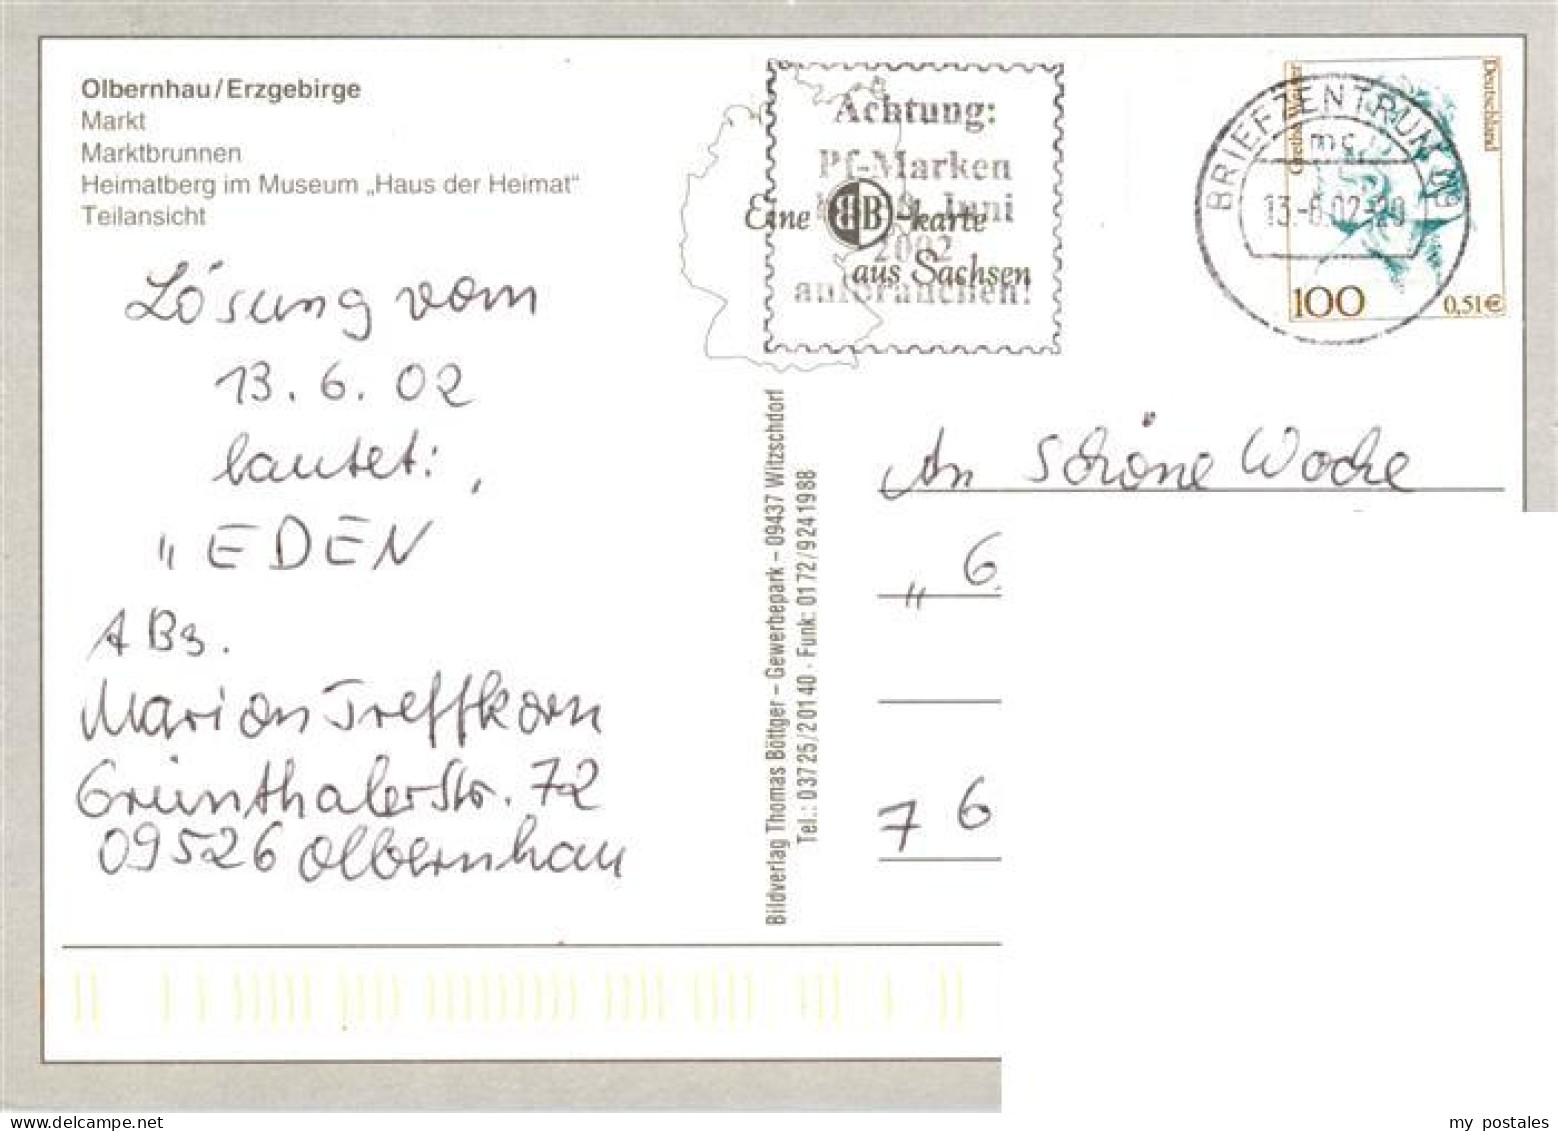 Olbernhau/Erzgebirge
Markt
Marktbrunnen
Heimatberg im Museum „Haus der Heimat“
Teilansicht
Achtung:
Pf-Marken
Juni
2002
aufbrauchen!
Eine BB-karte
aus Sachsen
BRIEFZENTRUM 09
mc
13.-6.02-20
Deutschland
100
0,51€
Lösung vom
13.6.02
lautet:
„EDEN
ABs.
Marion Treffkorn
Grünthalerstr. 72
09526 Olbernhau
Bildverlag Thomas Böttger – Gewerbepark – 09437 Witzschdorf
Tel.: 03725/20140 · Funk: 0172/9241988
An Schöne Woche
„ 6
76
my postales